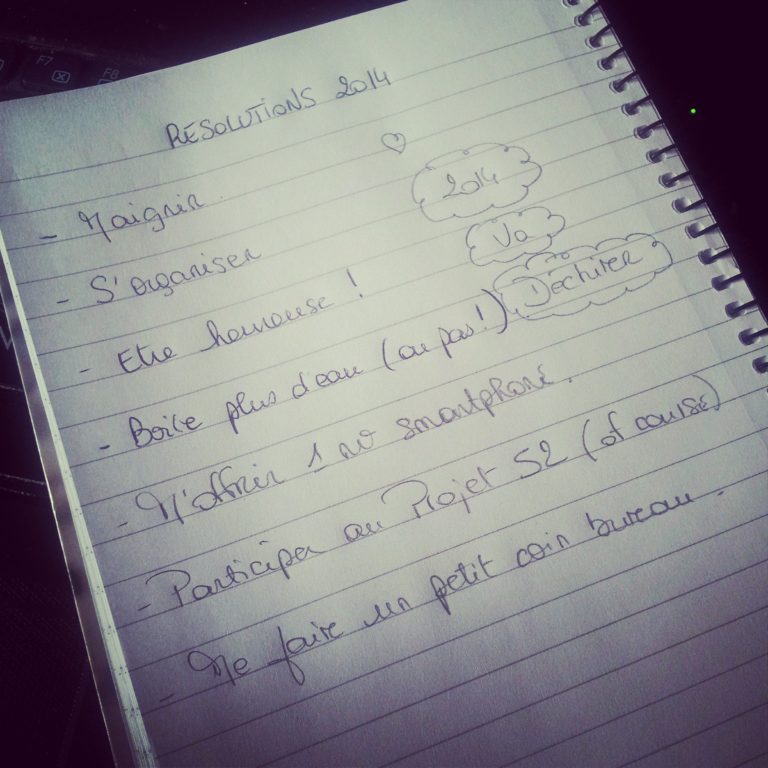 F7
F8
RÉSOLUTIONS 2014
- Maigrir.
- S'organiser
- Etre heureuse !
- Boire plus d'eau (ou pas !)
- M'offrir 1 nv smartphone.
- Participer au Projet 52 (of course)
- Me faire un petit coin bureau.
2014
Va
Déchirer